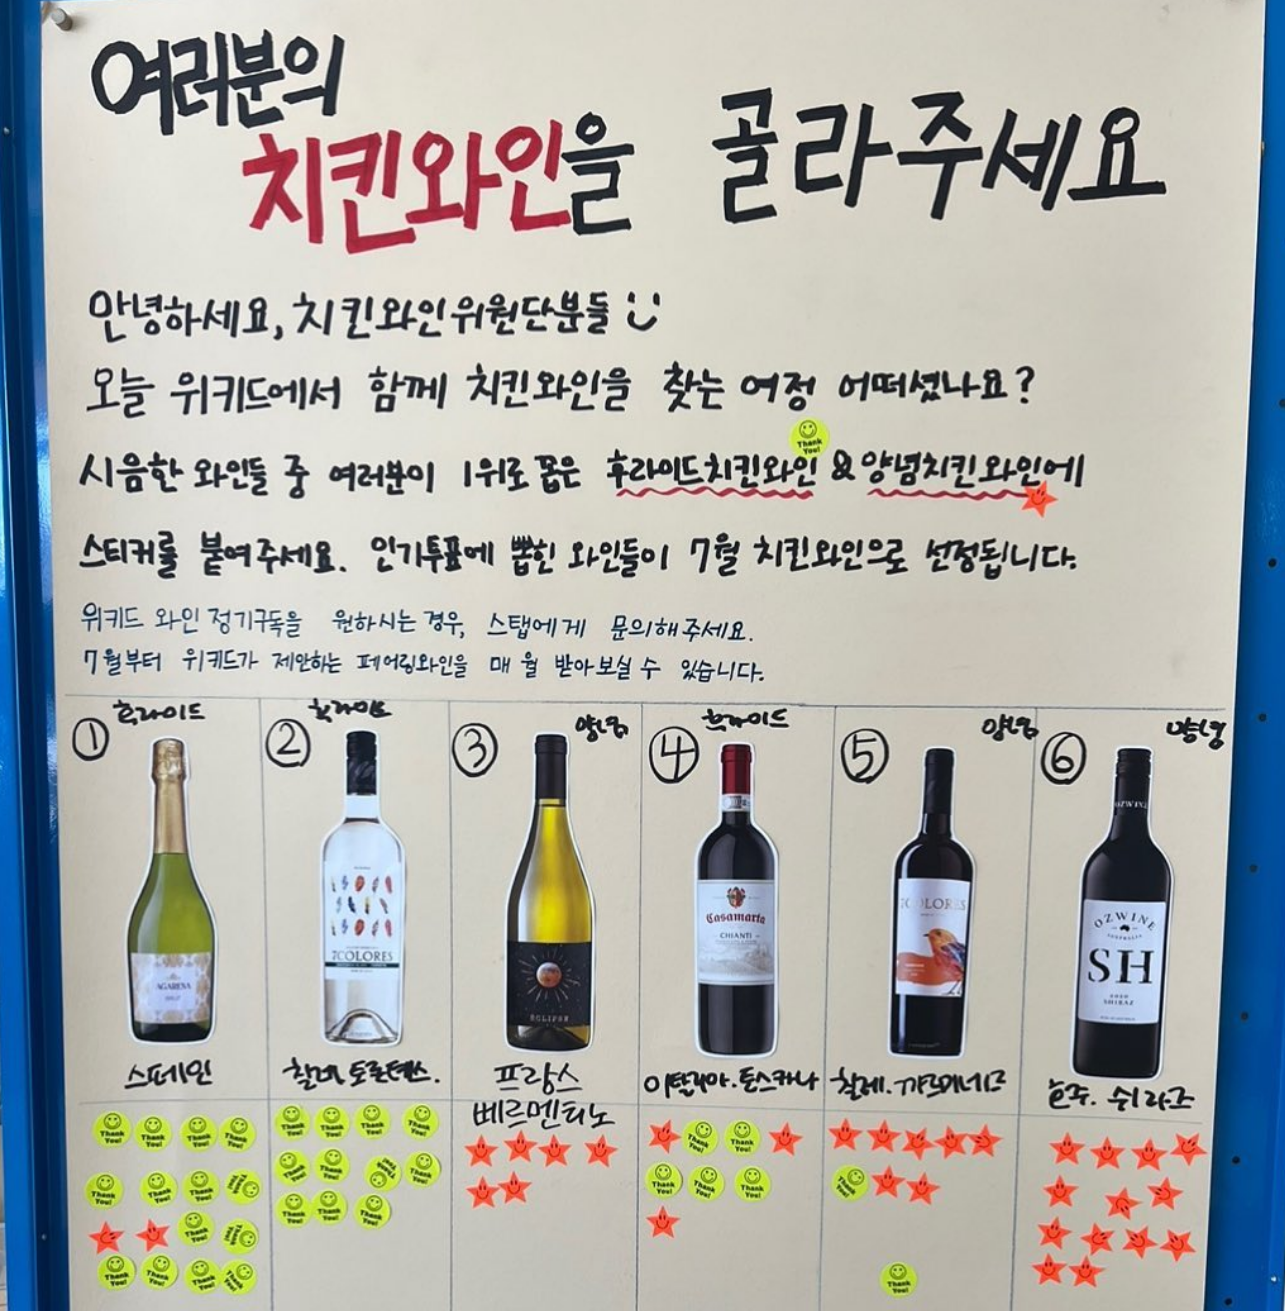 여러분의
치킨와인을 골라주세요
안녕하세요, 치킨와인위원단분들
오늘 위키드에서 함께 치킨와인을 찾는 여정 어떠셨나요?
시음한 와인들 중 여러분이 1위로 꼽은 후라이드치킨와인 & 양념치킨와인에
스티커를 붙여주세요. 인기투표에 뽑힌 와인들이 7월 치킨와인으로 선정됩니다.
위키드 와인 정기구독을 원하시는 경우, 스탭에게 문의해주세요.
7월부터 위키드가 제안하는 페어링와인을 매 월 받아보실 수 있습니다.
① 후라이드
② 후라이드
③ 양념
④ 후라이드
⑤ 양념
⑥ 양념
AGARENA
7COLORES
ECLIPSE
Casamarta
CHIANTI
7COLORES
OZWINE
OZWINE
AUSTRALIA
SH
2020
SHIRAZ
스페인
칠레. 토론텐스.
프랑스
베르멘티노
이탈리아. 토스카나
칠레. 까르미네르
호주. 쉬라즈
Thank You!